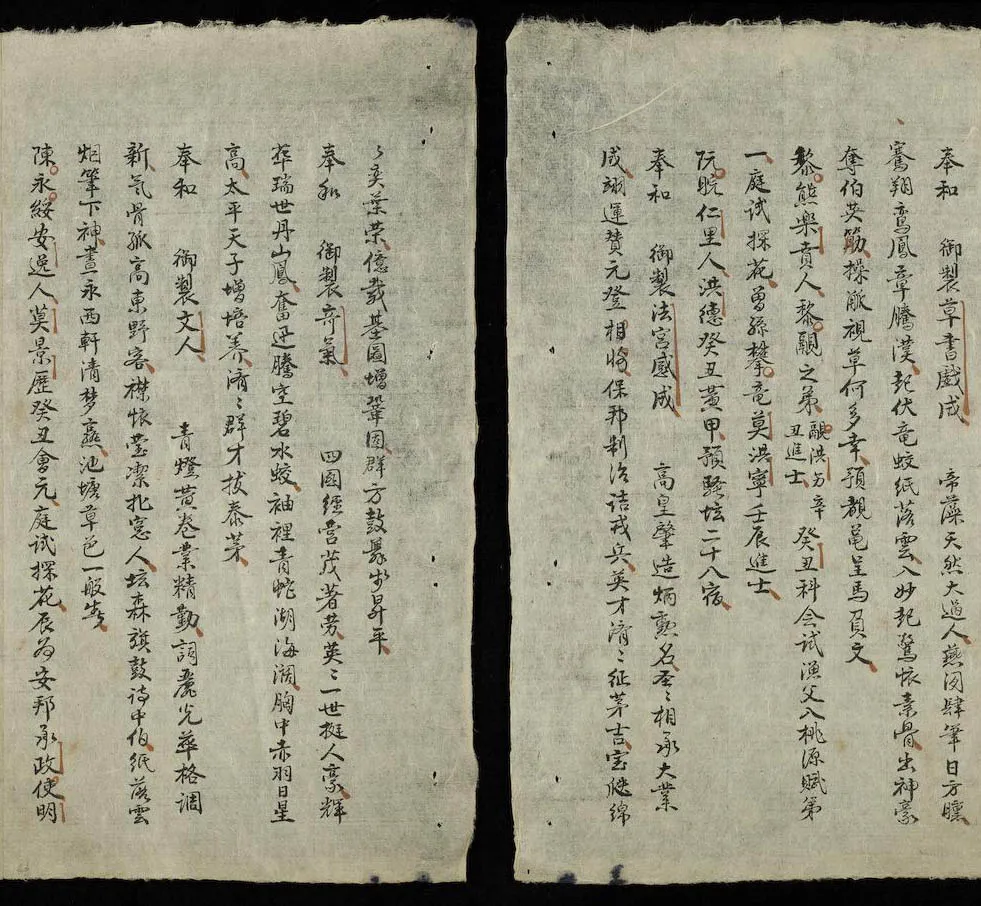 奉和 御製草書戲成 帝藻天然大過人燕閒肆筆日方曛
騫翔鸞鳳章騰漢起伏竜蛟紙落雲入妙起驚懷素骨出神豪
奪伯英筋操觚視草何多幸預覩黽呈馬負文
黎熊樂賁人黎䦨之弟 癸丑科会試漁父入桃源賦第
丑進士
一庭試探花曾孫攀竜莫洪寧壬辰進士
阮晥仁里人洪德癸丑黃甲預騷坛二十八宿
奉和 御製法宮感成 高皇肇造炳勲名圣〻相承大業
成翊運賛元登相將保邦制治詰戎兵英才濟〻征茅吉宝歴綿
〻奕葉荣億載基圖增鞏固群方鼓舞步昇平
奉和 御製奇氣 四國經营茂著劳英〻一世挺人豪輝
華瑞世丹山鳳奮迅騰空碧水蛟袖裡青蛇湖海濶胸中赤羽日星
高太平天子增培养濟〻群才拔泰茅
奉和 御製文人 青燈黄卷業精勤詞麗光華格調
新氣骨孤高東野客襟懷莹潔北窓人坛森旗鼓诗中伯紙落雲
烟筆下神晝永西軒清梦熹池塘草色一般春
陳永綏安逸人莫景歷癸丑會元庭試探花辰为安邦承政使明